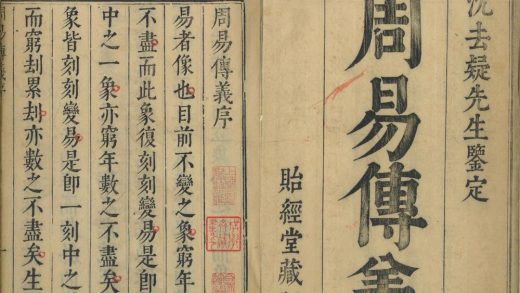 沈去疑先生鑒定
周易傳義
貽經堂藏
周易傳義序
易者像也目前不變之象窮年
不盡而此象復刻刻變易是即
中之一象亦窮年數之不盡矣
象皆刻刻變易是即一刻中之
而窮刼累刼亦數之不盡矣生